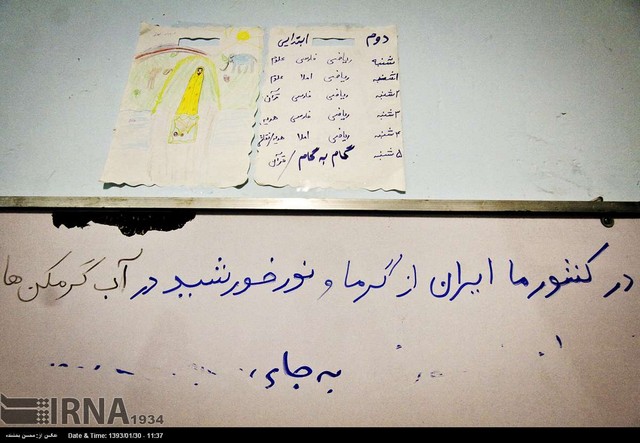 دوم ابتدایی
شنبه ریاضی فارسی علوم
۱شنبه ریاضی املا علوم
۲شنبه ریاضی فارسی قرآن
۳شنبه ریاضی فارسی هدیه
۴شنبه ریاضی املا
۵شنبه گام به گام / قرآن
در کشور ما ایران از گرما و نور خورشید در آب گرمکن ها
به جای،
IRNA 1934
عکس از: محسن بخشنده
Date & Time: 1393/01/30 - 11:37